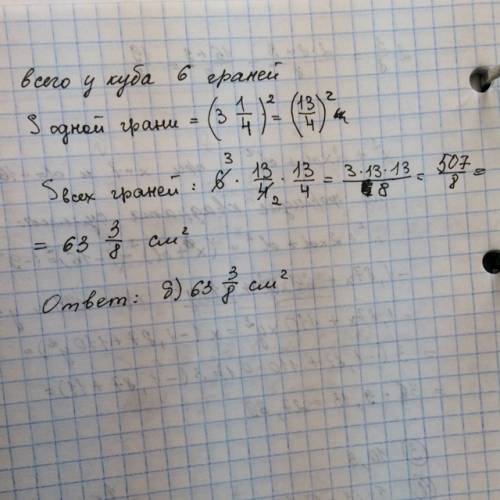 всего у куба 6 граней
S одной грани = (3 1/4)² = (13/4)²
S всех граней : 6 3 · 13/4 2 · 13/4 = 3·13·13/8 = 507/8 =
= 63 3/8 см²
Ответ: б) 63 3/8 см²